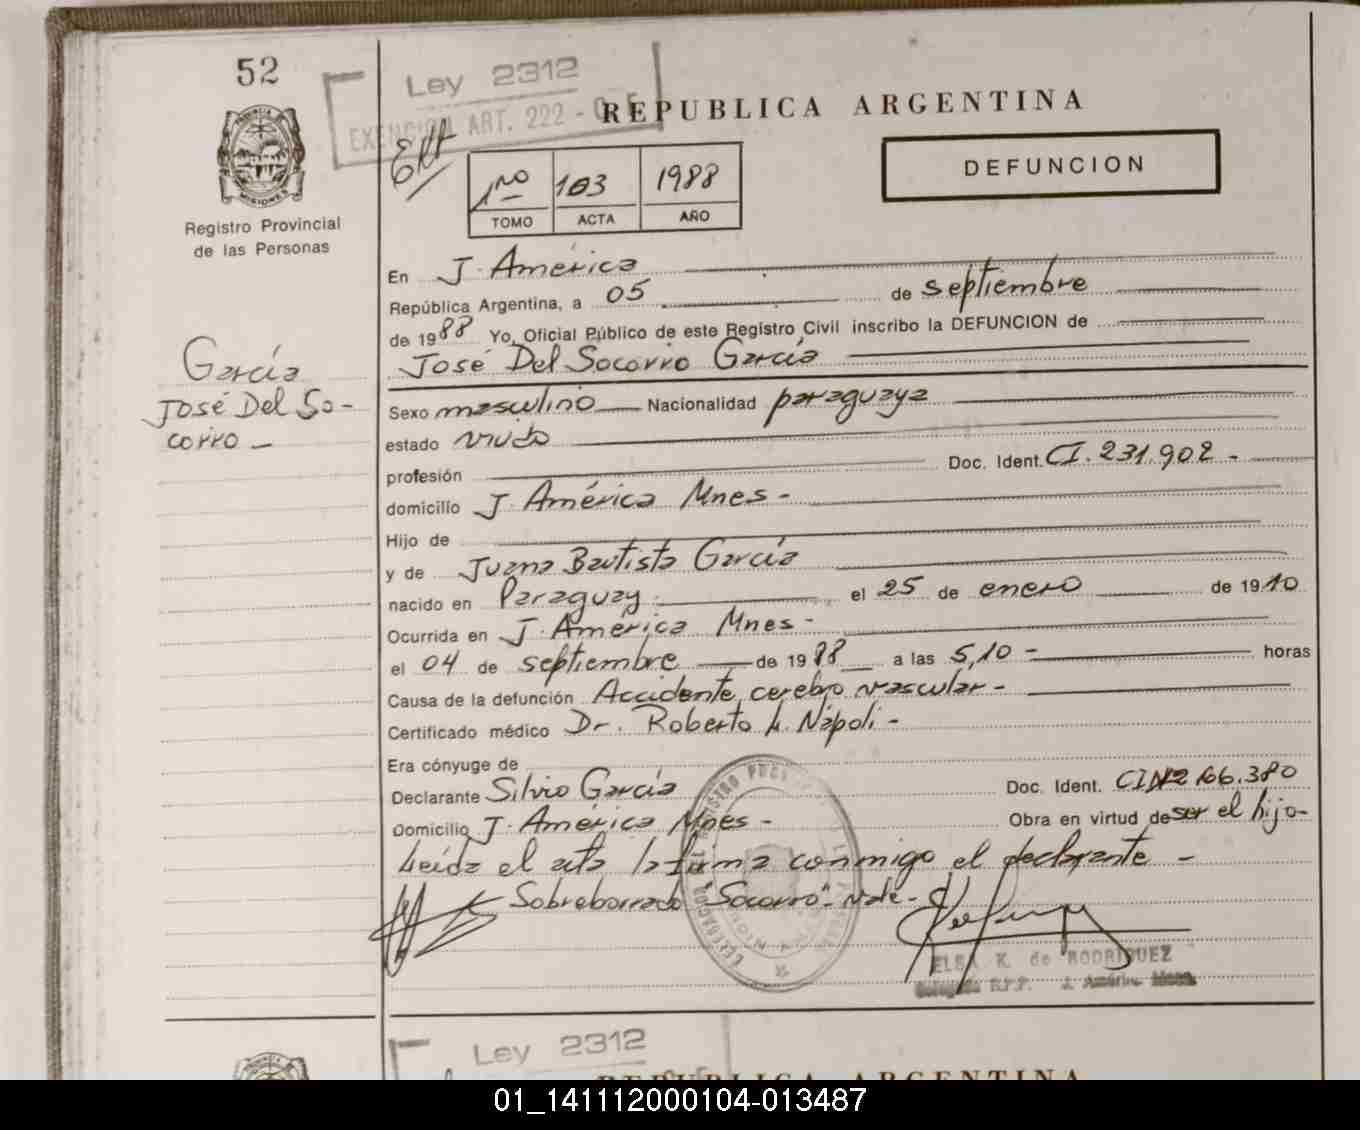 52
Ley 2312
EXENCION ART. 222 -
REPUBLICA ARGENTINA
DEFUNCION
1ro 103 1988
TOMO ACTA AÑO
PROVINCIA
MISIONES
Registro Provincial
de las Personas
García
José Del So-
corro -
En J. América
República Argentina, a 05 de septiembre
de 1988 Yo, Oficial Público de este Registro Civil inscribo la DEFUNCION de
José Del Socorro García
Sexo masculino Nacionalidad paraguaya
estado viudo
profesión Doc. Ident. CI. 231.902 -
domicilio J. América Mnes -
Hijo de
y de Juana Bautista García
nacido en Paraguay. el 25 de enero de 1910
Ocurrida en J. América Mnes -
el 04 de septiembre de 1988 a las 5,10 - horas
Causa de la defunción Accidente cerebro vascular -
Certificado médico Dr. Roberto A. Nápoli -
Era cónyuge de
Declarante Silvio García Doc. Ident. CI Nº 166.380
Domicilio J. América Mnes - Obra en virtud de ser el hijo -
Leída el acta la firma conmigo el declarante -
Sobreborrado "Socorro" - vale -
ELSA K. de RODRIGUEZ
Delegada R.P.P. J. América Mnes.
Ley 2312
REPUBLICA ARGENTINA
01_141112000104-013487